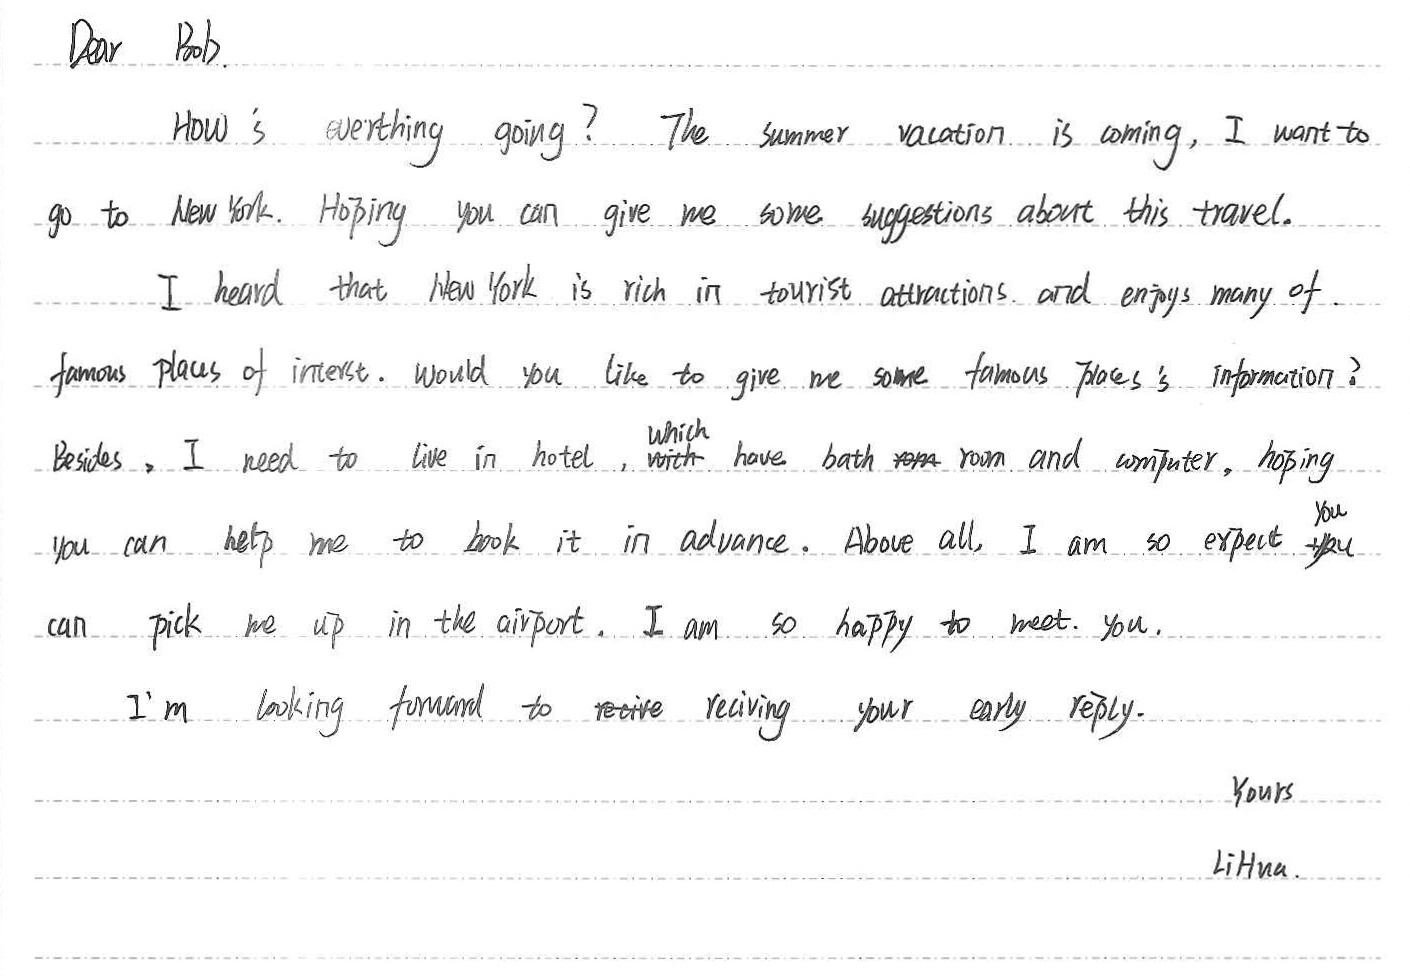 Dear Bob.
How's everthing going? The summer vacation is coming, I want to
go to New York. Hoping you can give me some suggestions about this travel.
I heard that New York is rich in tourist attractions and enjoys many of
famous places of interst. Would you like to give me some famous places's information?
Besides, I need to live in hotel, which have bath room and computer, hoping
you can help me to book it in advance. Above all, I am so expect you
can pick me up in the airport. I am so happy to meet you.
I'm looking forward to reciving your early reply.
Yours
LiHua.